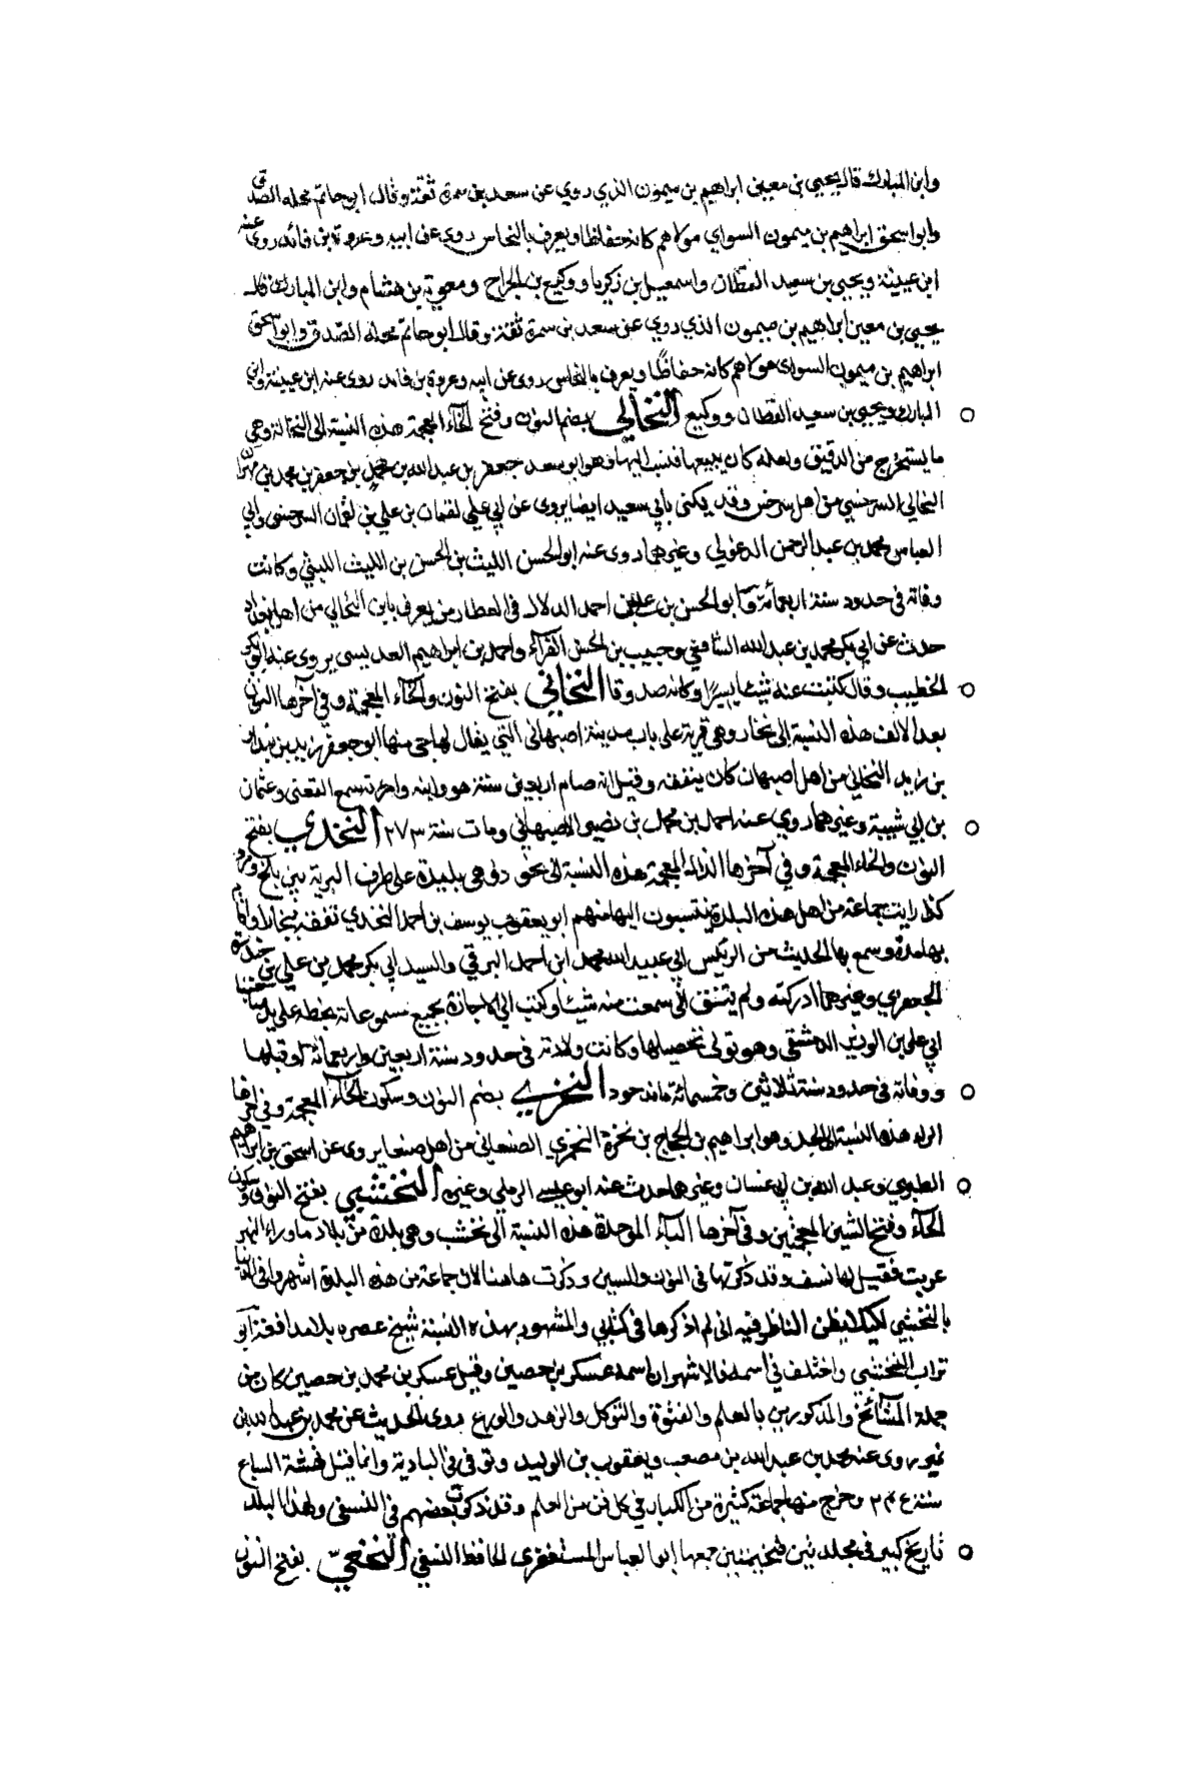 وابن المبارك قال يحيى بن معين ابراهيم بن ميمون الذي روي عن سعد بن سمرة ثقة وقال ابو حاتم محله الصدق
وابو اسحق ابراهيم بن ميمون السواي مولاهم كانه حفاظا ويعرف بالنحاس روى عن ابيه وعروة بن فائد روى عنه
ابن عيينة ويحيى بن سعيد القطان واسمعيل بن زكريا ووكيع بن الجراح ومعوية بن هشام وابن المبارك قال
يحيى بن معين ابراهيم بن ميمون الذي روي عن سعد بن سمرة ثقة وقال ابو حاتم محله الصدق وابو اسحق
ابراهيم بن ميمون السواى مولاهم كانه حفاظًا ويعرف بالنحاس روى عن ابيه وعروة بن فائد روى عنه ابن عيينة وابن
المبارك ويحيى بن سعيد القطان ووكيع النخالي بضم النون وفتح الخاء المعجمة هذه النسبة الى النخالة وهي
ما يستخرج من الدقيق ولعله كان يبيعها فنسب اليها وهو ابو سعد جعفر بن عبد الله بن محمد بن جعفر بن محمد بن
النخالي السرخسي من اهل سرخس وقد يكنى بابي سعيد ايضا يروى عن ابي علي لقمان بن علي بن لقمان السرخسى وابي
العباس محمد بن عبد الرحمن الدغولي وغيرهما روى عنه ابو الحسن الليث بن الحسن بن الليث الليثي وكانت
وفاته في حدود سنة اربعمائة وابو الحسن بن علي بن احمد الدلال في العطارين يعرف بابن النخالي من اهل بغداد
حدث عن ابي بكر محمد بن عبد الله الشافعي وحبيب بن الحسن القزاز واحمد بن ابراهيم العديسى يروى عنه ابو بكر
الخطيب وقال كتبت عنه شيئا يسيرًا وكان صدوقا النخاني بفتح النون والخاء المعجمة وفي آخرها النون
بعد الالف هذه النسبة الى نخان وهي قرية على باب مدينة اصبهان التي يقال لها جي منها ابو جعفر زيد بن بندار
بن زيد النخاني من اهل اصبهان كان يتفقه وقيل انه صام اربعين سنة هو وابنه وامرته سمع القعنبى وعثمان
بن ابي شيبة وغيرهما روي عنه احمد بن محمد بن نصير الاصبهاني ومات سنة ٢٧٣ النخذي بفتح
النون والخاء المعجمة وفي آخرها الذال المعجمة هذه النسبة الى نخوذ وهي بليدة على طرف البرية بين بلخ ومرو
كذا رايت جماعة من اهل هذه البلدة ينتسبون اليها منهم ابو يعقوب يوسف بن احمد النخذي تفقه ببخارا واقام
بها مدة وسمع بها الحديث من الرئيس ابي عبيد الله محمد ابن احمد البرقي والسيد ابي بكر محمد بن علي بن حيدرة
الجعفري وغيرهما ادركته ولم يتفق لي سمعت منه شيئا وكتب الي الاجازة بجميع مسموعاته بخطه على يد
ابي علي بن الوزير الدمشقي وهو تولى تحصيلها وكانت ولادته في حدود سنة اربعين واربعمائة او قبلها
ووفاته في حدود سنة ثلاثين وخمسمائة النخري بضم النون وسكون الخاء المعجمة وفي اخرها
الراء هذه النسبة الى الجد وهو ابراهيم بن الحجاج بن نخرة النخري الصنعاني من اهل صنعا يروى عن اسحق بن ابراهيم
الطبري وعبد الله بن ابي غسان وغيرهما حدث عنه ابو عيسى الرملي وغيره النخشبي بفتح النون وسكون
الخاء وفتح الشين المعجمتين وفي آخرها الباء الموحدة هذه النسبة الى نخشب وهي بلدة من بلاد ما وراء النهر
عربت فقيل لها نسف وقد ذكرتها في النون والسين وذكرت هاهنا لان جماعة من هذه البلدة اشتهروا في
بالنخشبي لكيلا يظن الناظر فيه انى لم اذكرها في كتابي والمشهور بهذه النسبة شيخ عصره بلا مدافعة ابو
تراب النخشبي واختلف في اسمه فالاشهر ان اسمه عسكر بن حصين وقيل عسكر بن محمد بن حصين كان من
جملة المشائخ والمذكورين بالعلم والفتوة والتوكل والزهد والورع روى الحديث عن محمد بن عبد الله بن
نمير روى عنه محمد بن عبد الله بن مصعب ويعقوب بن الوليد وتوفي في البادية وانما قيل نهشته السباع
سنة ٢٤٥ وخرج منها جماعة كثيرة من الكبار في كل فن من العلم وقد ذكرت بعضهم في النسفى ولهذا البلد
تاريخ كبير في مجلدتين ضخيمتين جمعها ابو العباس المستغفرى الحافظ النسفي النخعيّ بفتح النون